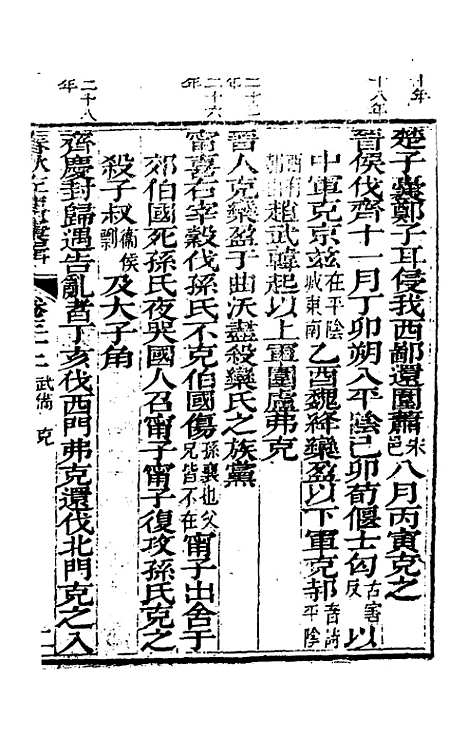 十年
楚子囊鄭子耳侵我西鄙還圍蕭宋邑八月丙寅克之
十八年
晉侯伐齊十一月丁卯朔入平陰己卯荀偃士匄古害反以
中軍克京茲在平陰城東南乙酉魏絳欒盈以下軍克邿音詩平陰
西有邿山趙武韓起以上軍圍盧弗克
晉人克欒盈于曲沃盡殺欒氏之族黨
二十六年
甯喜右宰穀伐孫氏不克伯國傷孫襄也父兄皆不在甯子出舍于
郊伯國死孫氏夜哭國人召甯子甯子復攻孫氏克之
殺子叔衛侯剽及大子角
二十八年
齊慶封歸遇告亂者丁亥伐西門弗克還伐北門克之入
卷三十三 武備 克